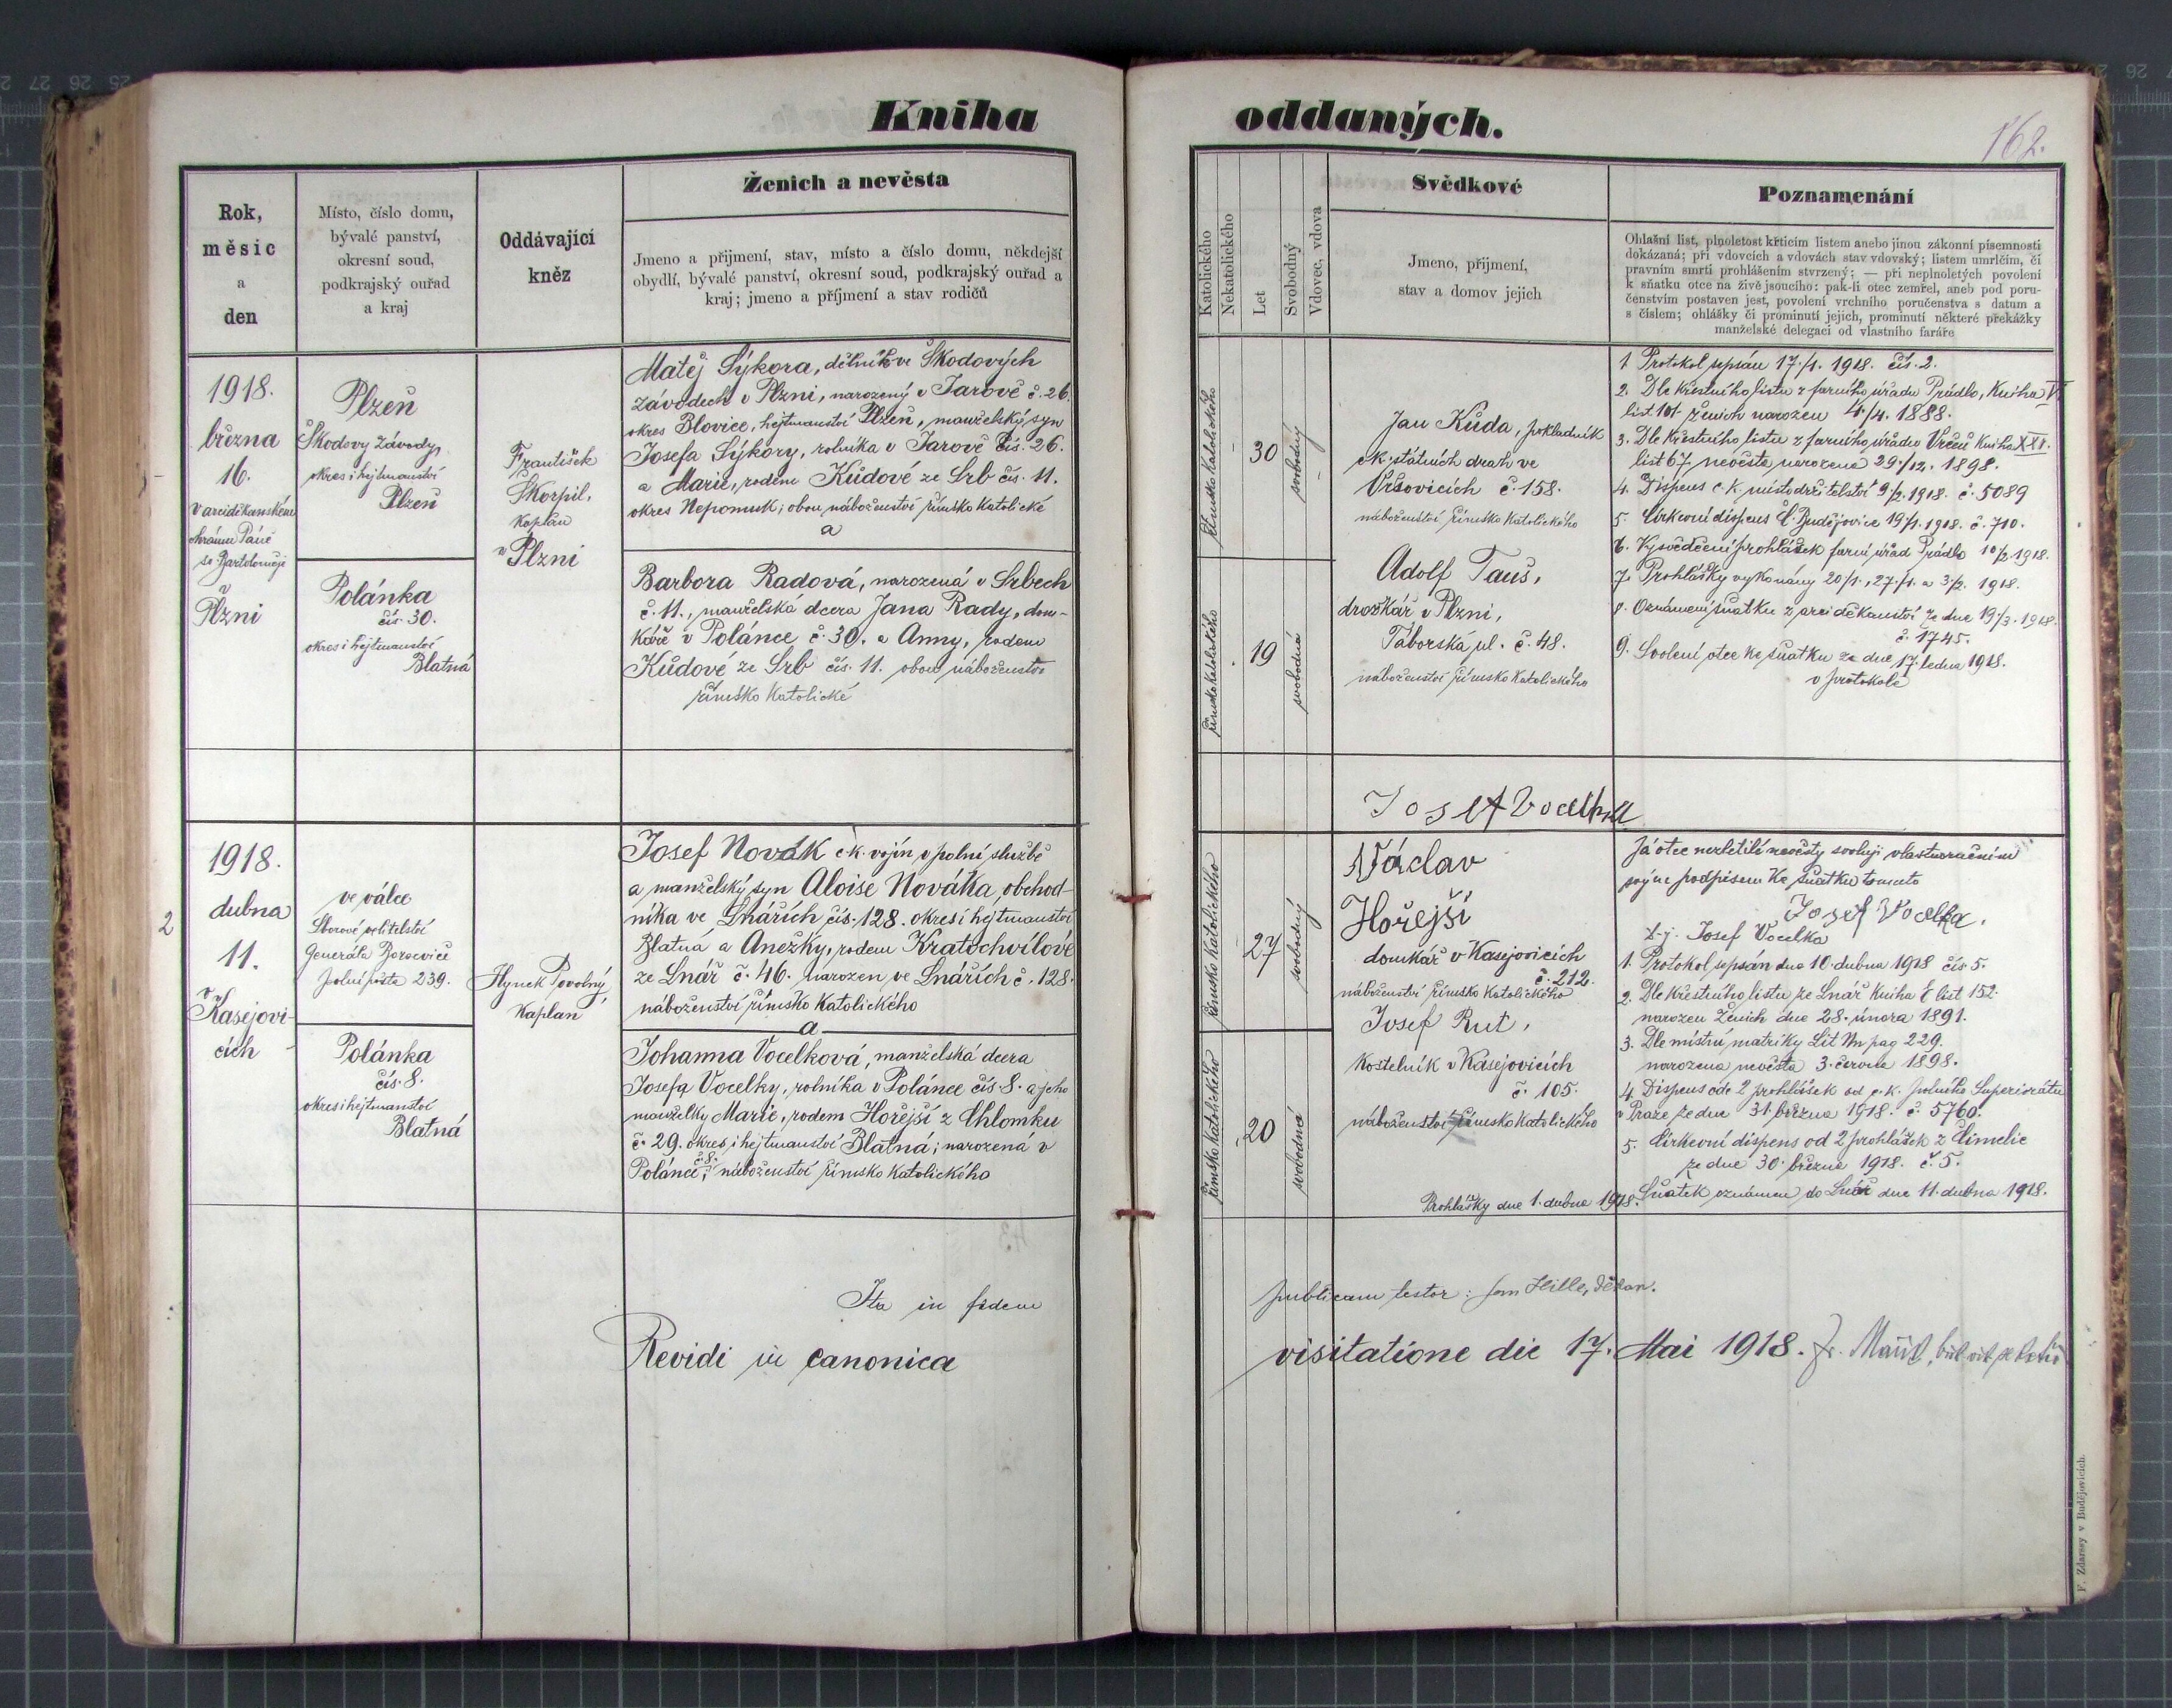 Kniha
oddaných.
162.
Rok,
měsíc
a
den
Místo, číslo domu,
bývalé panství,
okresní soud,
podkrajský ouřad
a kraj
Oddávající
kněz
Ženich a nevěsta
Jmeno a přijmení, stav, místo a číslo domu, někdejší
obydlí, bývalé panství, okresní soud, podkrajský ouřad a
kraj; jmeno a příjmení a stav rodičů
Katolického
Nekatolického
Let
Svobodný
Vdovec, vdova
Svědkové
Jmeno, přijmení,
stav a domov jejich
Poznamenání
Ohlašní list, plnoletost křticím listem anebo jinou zákonní písemnosti
dokázaná; při vdovcích a vdovách stav vdovský; listem umrlčím, či
pravním smrti prohlášením stvrzený; — při neplnoletých povolení
k sňatku otce na živě jsoucího: pak-li otec zemřel, aneb pod poru-
čenstvím postaven jest, povolení vrchního poručenstva s datum a
s číslem; ohlášky či prominutí jejich, prominutí některé překážky
manželské delegací od vlastního faráře
1918.
března
16.
v arciděkanském
chrámu Páně
sv Bartoloměje
v
Plzni
Plzeň
Škodovy závody,
okres i hejtmanství
Plzeň
Polánka
čís. 30.
okres i hejtmanství
Blatná
František
Škorpil,
kaplan
v Plzni
Matěj Sýkora, dělník ve Škodových
závodech v Plzni, narozený v Jarově č. 26.
okres Blovice, hejtmanství Plzeň, manželský syn
Josefa Sýkory, rolníka v Jarově čís. 26.
a Marie, rodem Kůdové ze Srb čís. 11.
okres Nepomuk; obou náboženství římsko katolické
a
Barbora Radová, narozená v Srbech
č. 11., manželská dcera Jana Rady, dom-
káře v Polánce č. 30. a Anny, rodem
Kůdové ze Srb čís. 11. obou náboženství
římsko katolické
římsko katolického
30
svobodný
římsko katolického
19
svobodná
Jan Kůda, pokladník
c.k. státních drah ve
Vršovicích č. 158.
náboženství římsko katolického
Adolf Tauš,
drožkář v Plzni,
Táborská ul. č. 48.
náboženství římsko katolického
1. Protokol sepsán 17./1. 1918. čís. 2.
2. Dle křestního listu z farního úřadu Prádlo, Kniha VI
list 101. ženich narozen 4./4. 1888.
3. Dle křestního listu z farního úřadu Vrčeň kniha XXI.
list 67. nevěsta narozena 29./12. 1898.
4. Dispens c. k. místodržitelství 9/2. 1918. č. 5089
5. Církevní dispens Č. Budějovice 19/1. 1918. č. 710.
6. Vysvědčení prohlášek farní úřad Prádlo 10/2 1918.
7. Prohlášky vykonány 20/1., 27./1. a 3/2. 1918.
8. Oznámení sňatku z arciděkanství ze dne 19/3. 1918.
č. 1745.
9. Svolení otce ke sňatku ze dne 17. ledna 1918.
v protokole
Josef Vocelka
2
1918.
dubna
11.
v
Kasejovi-
cích
ve válce
Sborové velitelství
Generála Boroeviče
polní pošta 239.
Polánka
čís. 8.
okres i hejtmanství
Blatná
Hynek Povolný,
kaplan
Josef Novák c.k. vojín v polní službě
a manželský syn Aloise Nováka, obchod-
níka ve Lnářích čís. 128. okres i hejtmanství
Blatná a Anežky, rodem Kratochvílové
ze Lnář č. 46. narozen ve Lnářích č. 128.
náboženství římsko katolického
a
Johanna Vocelková, manželská dcera
Josefa Vocelky, rolníka v Polánce čís. 8. a jeho
manželky Marie, rodem Hořejší z Chlomku
č. 29. okres i hejtmanství Blatná; narozená v
Polánce č. 8.; náboženství římsko katolického
římsko katolického
27
svobodný
římsko katolického
20
svobodná
Václav
Hořejší
domkář v Kasejovicích
č. 212.
náboženství římsko katolického
Josef Rut,
kostelník v Kasejovicích
č. 105.
náboženství římsko katolického
Prohlášky dne 1. dubna 1918.
Já otec nezletilé nevěsty svoluji vlastnoručním
svým podpisem ke sňatku tomuto
Josef Vocelka.
t. j. Josef Vocelka
1. Protokol sepsán dne 10. dubna 1918 čís. 5.
2. Dle křestního listu ze Lnář kniha E list 152.
narozen ženich dne 28. února 1891.
3. Dle místní matriky Lit Nn pag 229.
narozena nevěsta 3. června 1898.
4. Dispens ode 2 prohlášek od c. k. polního Superiorátu
v Praze ze dne 31. března 1918. č. 5760.
5. Církevní dispens od 2 prohlášek z Čimelic
ze dne 30. března 1918. č. 5.
Sňatek oznámen do Lnář dne 11. dubna 1918.
Ita in fidem
publicam testor: Jan Hille, děkan.
Revidi in canonica
visitatione die 17. Mai 1918. Fr.
F. Zdarssy v Budějovicích.